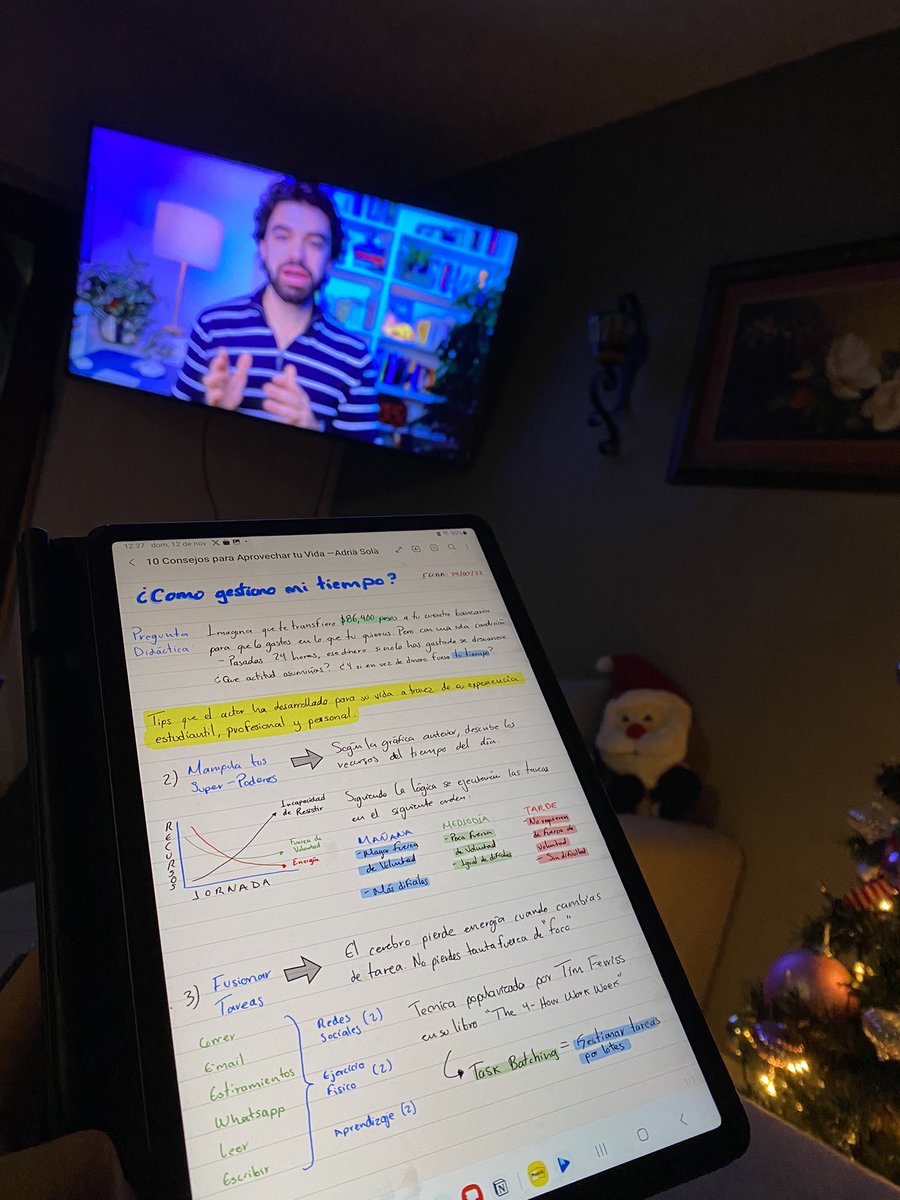 12:37 dom, 12 de nov
90%
10 Consejos para Aprovechar tu Vida —Adrià Solà
¿Como gestiono mi tiempo?
FECHA 29/07/23
Pregunta Didáctica
Imagina que te transfiero $86,400 pesos a tu cuenta bancaria
para que lo gastes en lo que tu quieras. Pero con una sola condición
- Pasadas 24 horas, ese dinero si no lo has gastado se desvanece
¿Que actitud asumirías? ¿Y si en vez de dinero fuese tu tiempo?
Tips que el actor ha desarrollado para su vida a travez de su experiencia
estudiantil, profesional y personal.
2) Manipula tus
Super-Poderes
Según la gráfica anterior, describe los
recursos del tiempo del día.
RECURSOS
JORNADA
Incapacidad
de Resistir
Fuerza de
Voluntad
Energía
Siguiendo la lógica se ejecutarán las tareas
en el siguiente orden:
MAÑANA
- Mayor fuerza
de Voluntad
- Más difíciles
MEDIODÍA
- Poca Fuerza
de Voluntad
- Igual de difíciles
TARDE
- No requieren
de Fuerza de
Voluntad
- Sin dificultad
3) Fusionar
Tareas
El cerebro pierde energía cuando cambias
de tarea. No pierdes tanta fuerza de "foco"
Correr
Email
Estiramientos
Whatsapp
Leer
Escribir
Redes
Sociales (2)
Ejercicio
Físico (2)
Aprendizaje (2)
Tecnica popularizada por Tim Ferriss
en su libro "The 4-Hour Work Week"
Task Batching = Gestionar tareas
por lotes
1/3